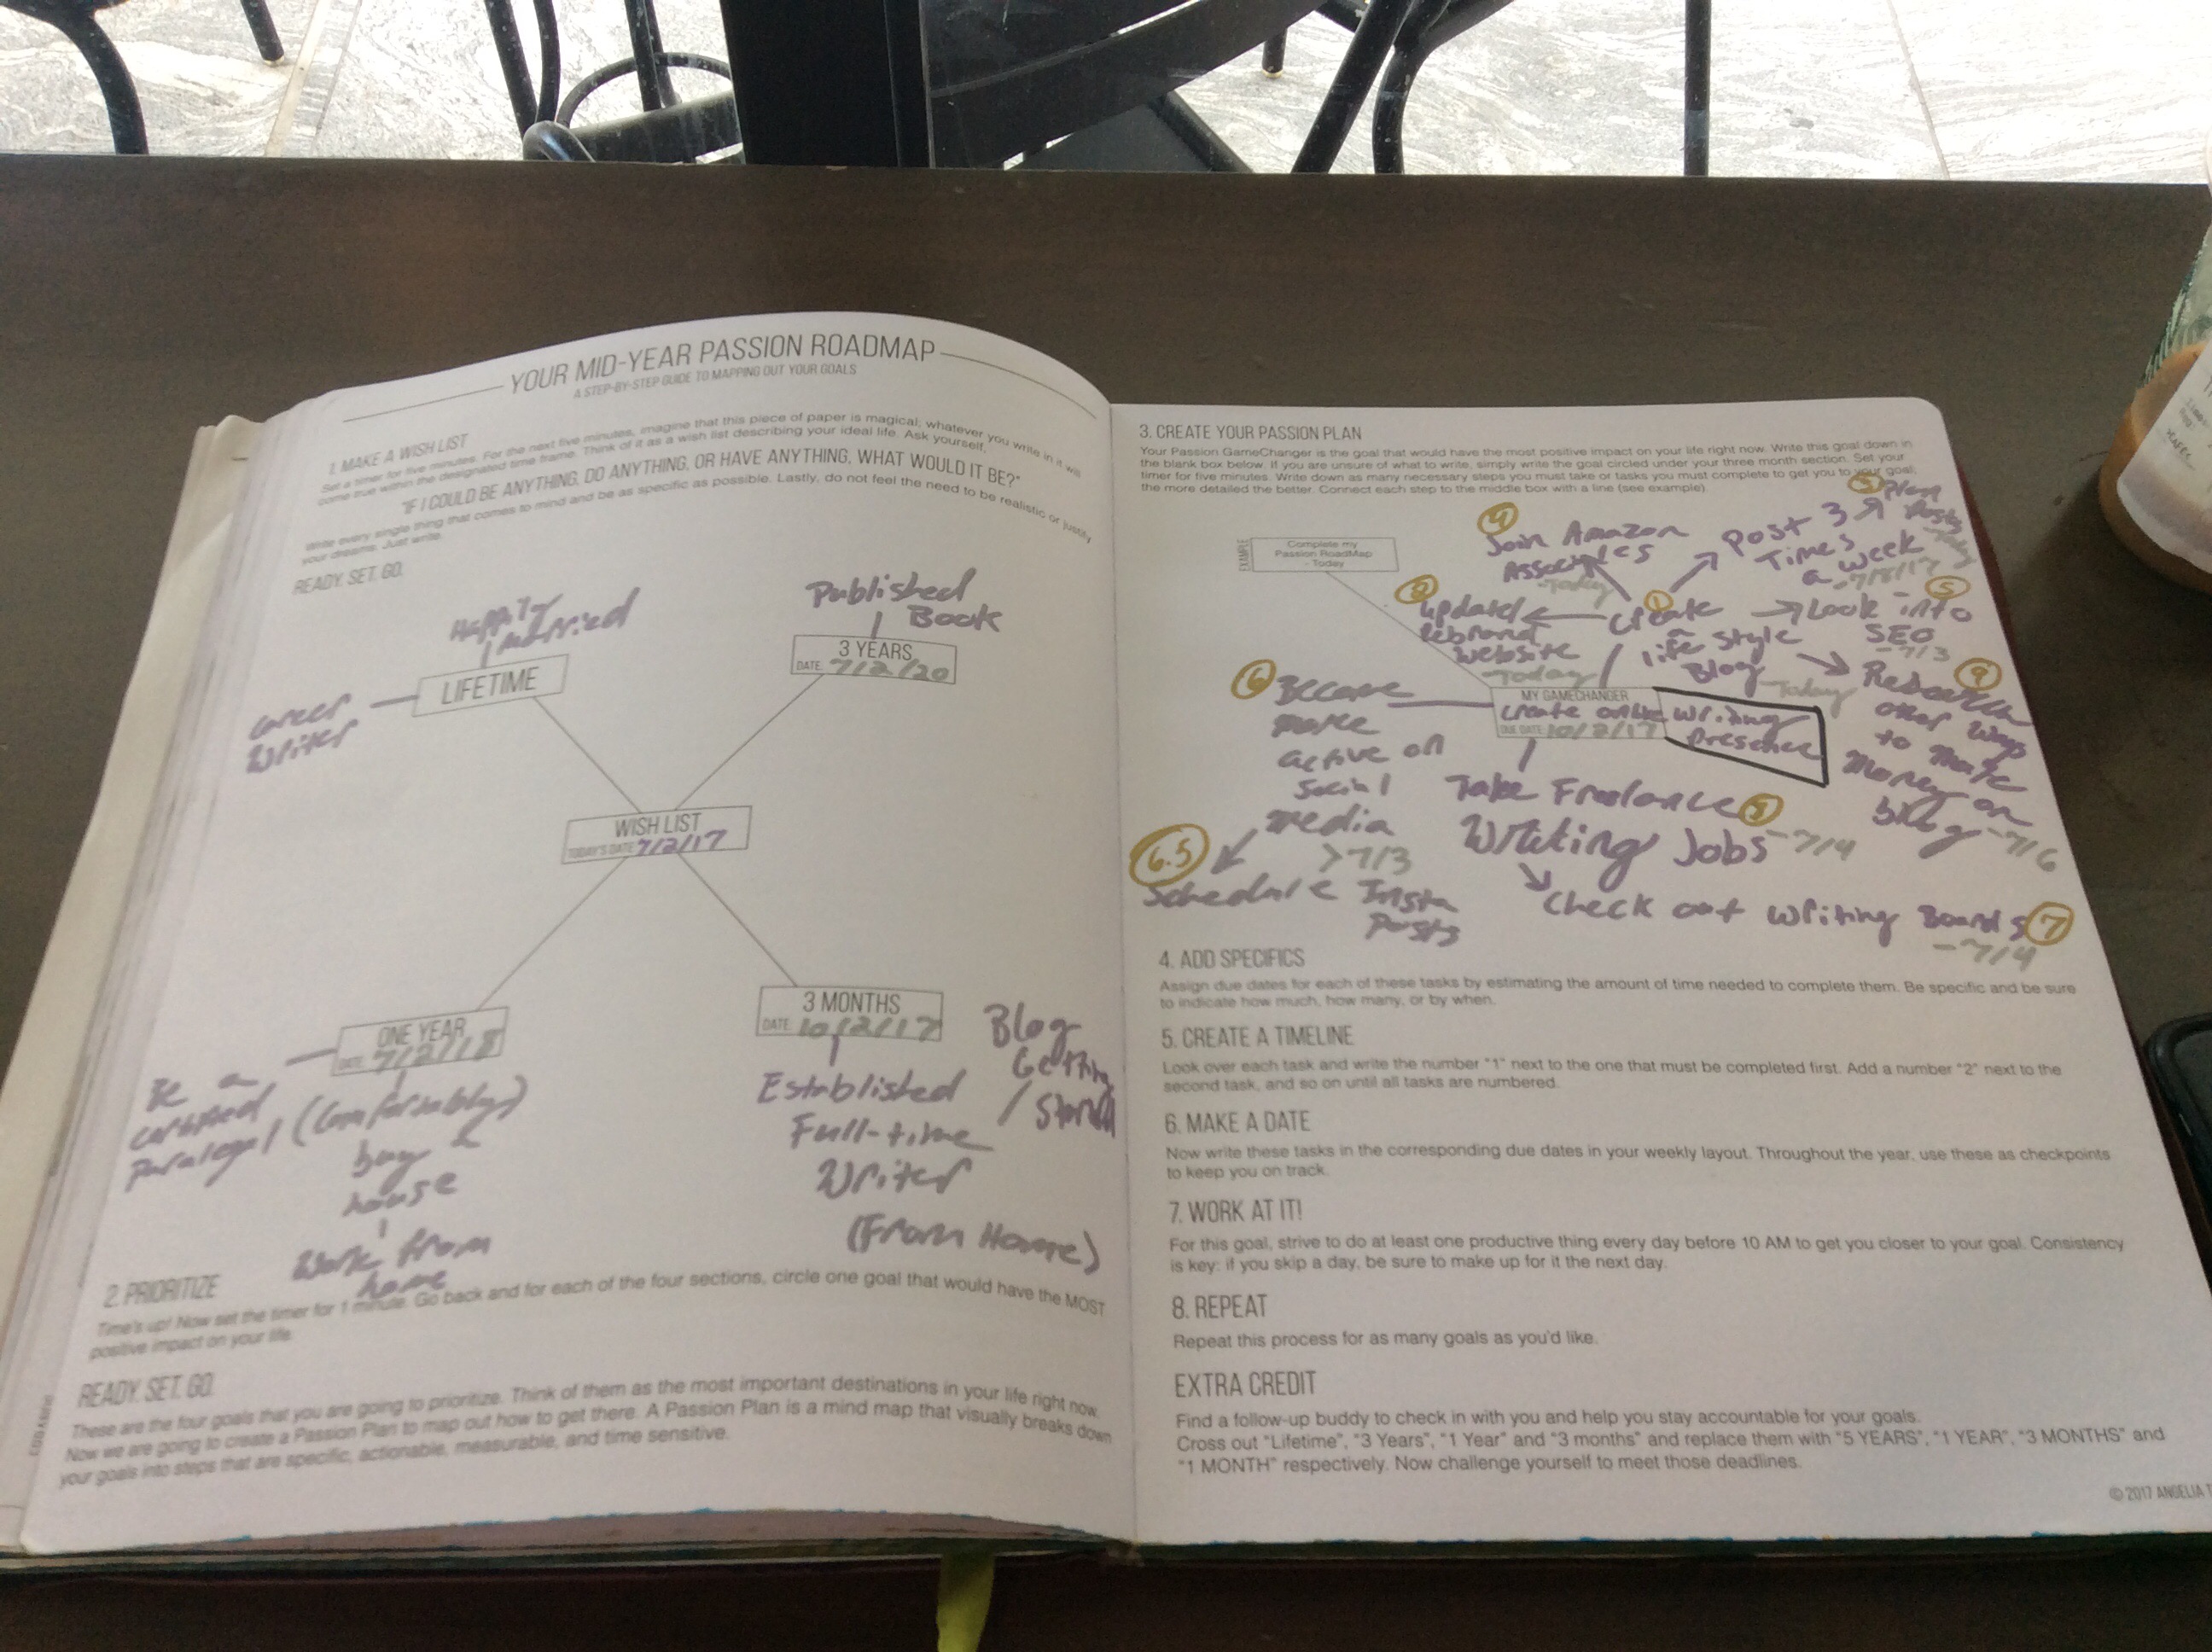 YOUR MID-YEAR PASSION ROADMAP
A STEP-BY-STEP GUIDE TO MAPPING OUT YOUR GOALS
1. MAKE A WISH LIST
Set a timer for five minutes. For the next five minutes, imagine that this piece of paper is magical; whatever you write in it will
come true within the designated time frame. Think of it as a wish list describing your ideal life. Ask yourself,
"IF I COULD BE ANYTHING, DO ANYTHING, OR HAVE ANYTHING, WHAT WOULD IT BE?"
Write every single thing that comes to mind and be as specific as possible. Lastly, do not feel the need to be realistic or justify
your dreams. Just write.
READY. SET. GO.
Happily
married
LIFETIME
career
writer
Published
Book
3 YEARS
DATE: 7/2/20
WISH LIST
TODAY'S DATE: 7/2/17
ONE YEAR
DATE: 7/2/18
Be a
certified
paralegal
(Comfortably)
buy a
house
work from
home
3 MONTHS
DATE: 10/2/17
Established
Full-time
Writer
(From Home)
Blog
Getting
Started
2. PRIORITIZE
Time's up! Now set the timer for 1 minute. Go back and for each of the four sections, circle one goal that would have the MOST
positive impact on your life.
READY. SET. GO.
These are the four goals that you are going to prioritize. Think of them as the most important destinations in your life right now.
Now we are going to create a Passion Plan to map out how to get there. A Passion Plan is a mind map that visually breaks down
your goals into steps that are specific, actionable, measurable, and time sensitive.
3. CREATE YOUR PASSION PLAN
Your Passion GameChanger is the goal that would have the most positive impact on your life right now. Write this goal down in
the blank box below. If you are unsure of what to write, simply write the goal circled under your three month section. Set your
timer for five minutes. Write down as many necessary steps you must take or tasks you must complete to get you to your goal;
the more detailed the better. Connect each step to the middle box with a line (see example).
EXAMPLE
Complete my
Passion RoadMap
- Today
4
Join Amazon
Associates
-Today
Post 3
Times
a week
-7/8/17
3
Plan
Posts
-Today
2
update/
rebrand
website
-Today
1
Create
a
life style
Blog
-Today
5
Look into
SEO
-7/3
9
Research
other ways
to make
money on
blog
-7/6
6
Become
more
active on
Social
media
>7/3
6.5
Schedule Insta
Posts
MY GAMECHANGER
create online writing
presence
DUE DATE: 10/2/17
Take Freelance 8
Writing Jobs -7/4
Check out writing Boards 7
-7/4
4. ADD SPECIFICS
Assign due dates for each of these tasks by estimating the amount of time needed to complete them. Be specific and be sure
to indicate how much, how many, or by when.
5. CREATE A TIMELINE
Look over each task and write the number "1" next to the one that must be completed first. Add a number "2" next to the
second task, and so on until all tasks are numbered.
6. MAKE A DATE
Now write these tasks in the corresponding due dates in your weekly layout. Throughout the year, use these as checkpoints
to keep you on track.
7. WORK AT IT!
For this goal, strive to do at least one productive thing every day before 10 AM to get you closer to your goal. Consistency
is key: if you skip a day, be sure to make up for it the next day.
8. REPEAT
Repeat this process for as many goals as you'd like.
EXTRA CREDIT
Find a follow-up buddy to check in with you and help you stay accountable for your goals.
Cross out "Lifetime", "3 Years", "1 Year" and "3 months" and replace them with "5 YEARS", "1 YEAR", "3 MONTHS" and
"1 MONTH" respectively. Now challenge yourself to meet those deadlines.
© 2017 ANGELIA T